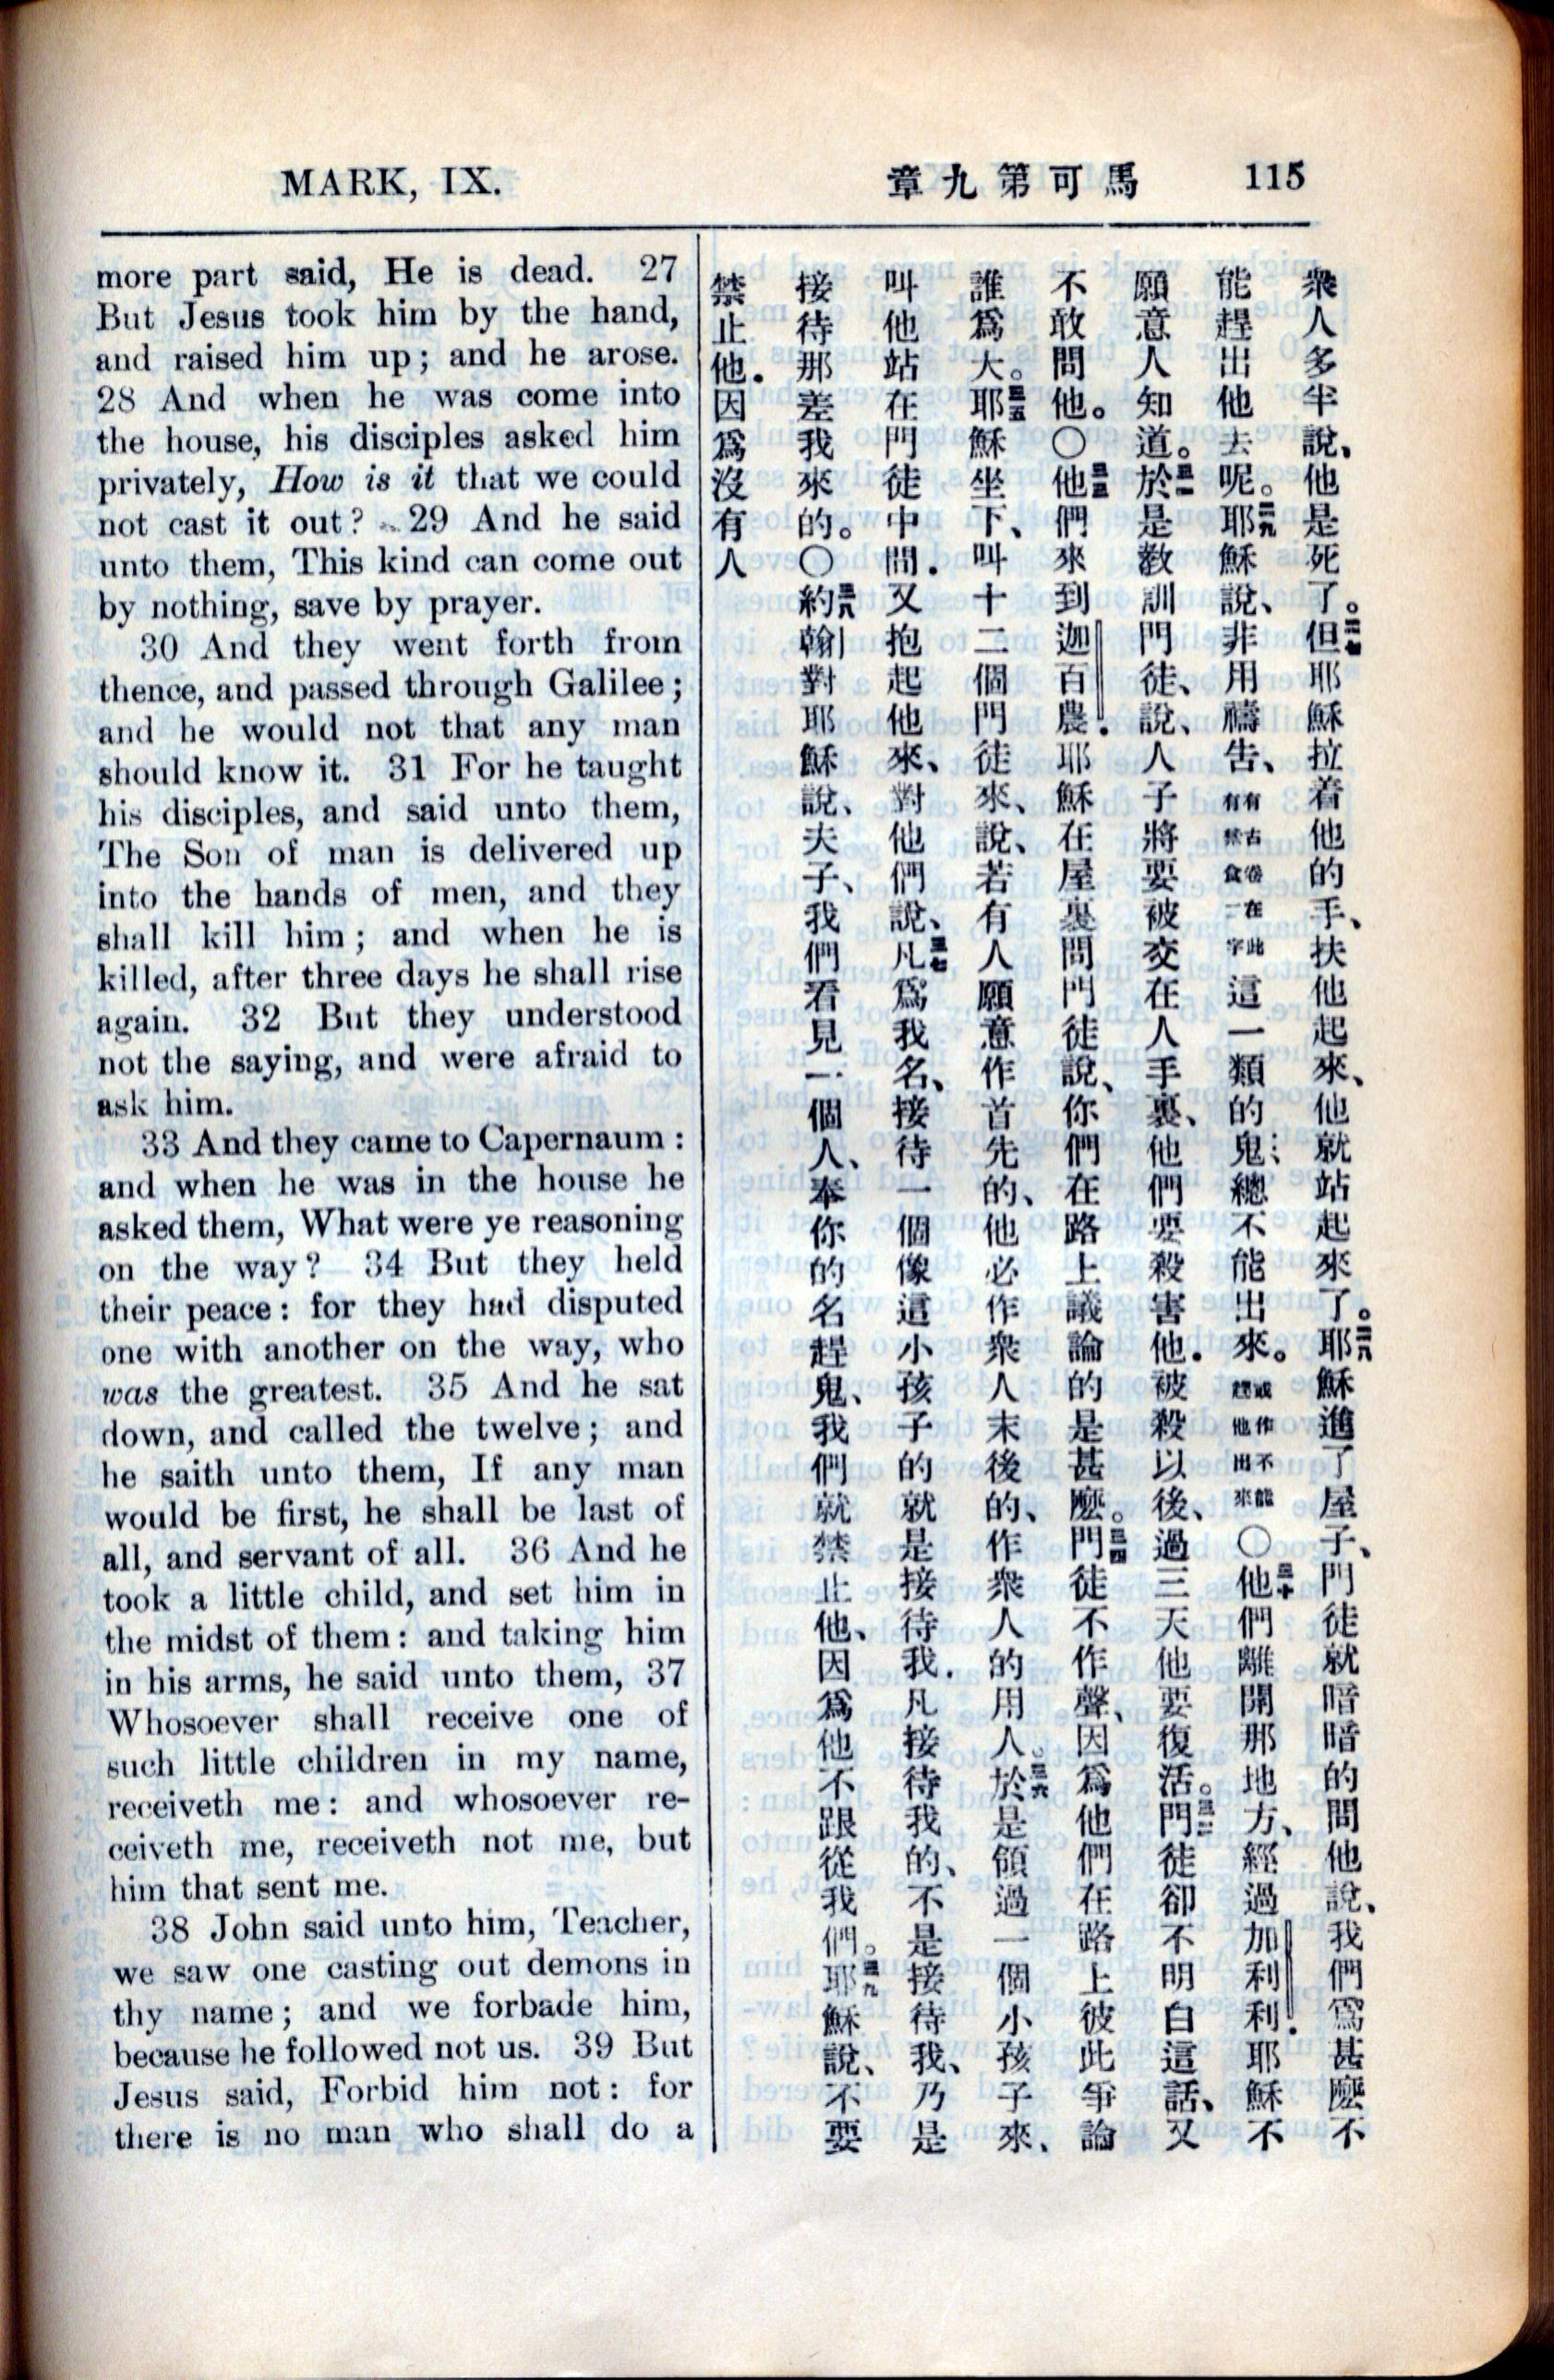 MARK, IX.
章九第可馬 115
more part said, He is dead. 27
But Jesus took him by the hand,
and raised him up; and he arose.
28 And when he was come into
the house, his disciples asked him
privately, How is it that we could
not cast it out? 29 And he said
unto them, This kind can come out
by nothing, save by prayer.
30 And they went forth from
thence, and passed through Galilee;
and he would not that any man
should know it. 31 For he taught
his disciples, and said unto them,
The Son of man is delivered up
into the hands of men, and they
shall kill him; and when he is
killed, after three days he shall rise
again. 32 But they understood
not the saying, and were afraid to
ask him.
33 And they came to Capernaum:
and when he was in the house he
asked them, What were ye reasoning
on the way? 34 But they held
their peace: for they had disputed
one with another on the way, who
was the greatest. 35 And he sat
down, and called the twelve; and
he saith unto them, If any man
would be first, he shall be last of
all, and servant of all. 36 And he
took a little child, and set him in
the midst of them: and taking him
in his arms, he said unto them, 37
Whosoever shall receive one of
such little children in my name,
receiveth me: and whosoever re-
ceiveth me, receiveth not me, but
him that sent me.
38 John said unto him, Teacher,
we saw one casting out demons in
thy name; and we forbade him,
because he followed not us. 39 But
Jesus said, Forbid him not: for
there is no man who shall do a
衆人多半說、他是死了。二七但耶穌拉着他的手、扶他起來、他就站起來了。二八耶穌進了屋子、門徒就暗暗的問他說、我們爲甚麼不
能趕出他去呢。二九耶穌說、非用禱告、有古卷在此有禁食二字這一類的鬼、總不能出來。或作不能趕他出來〇三十他們離開那地方、經過加利利．耶穌不
願意人知道。三一於是教訓門徒、說、人子將要被交在人手裏、他們要殺害他．被殺以後、過三天他要復活。三二門徒卻不明白這話、又
不敢問他。〇三三他們來到迦百農．耶穌在屋裏問門徒說、你們在路上議論的是甚麼。三四門徒不作聲、因爲他們在路上彼此爭論
誰爲大。三五耶穌坐下、叫十二個門徒來、說、若有人願意作首先的、他必作衆人末後的、作衆人的用人。三六於是領過一個小孩子來、
叫他站在門徒中間．又抱起他來、對他們說、三七凡爲我名、接待一個像這小孩子的就是接待我．凡接待我的、不是接待我、乃是
接待那差我來的。〇三八約翰對耶穌說、夫子、我們看見一個人、奉你的名趕鬼、我們就禁止他、因爲他不跟從我們。三九耶穌說、不要
禁止他．因爲沒有人